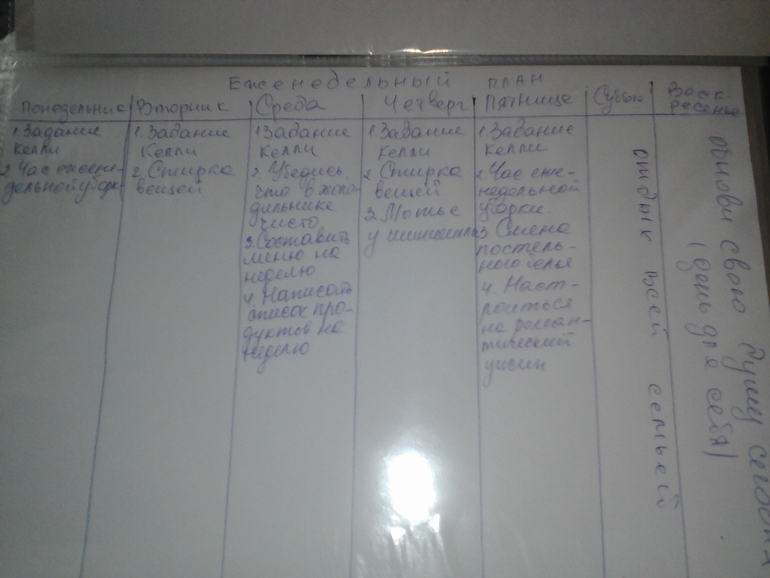 Еженедельный план
Понедельник
1. Задание
Келли
2. Час ежене-
дельной
Вторник
1. Задание
Келли
2. Стирка
вещей
Среда
1. Задание
Келли
2. Убедись,
что в холо-
дильнике
чисто
3. Составить
меню на
неделю
4. Написать
список про-
дуктов на
неделю
Четверг
1. Задание
Келли
2. Стирка
вещей
3. Мытье
Пятница
1. Задание
Келли
2. Час еже-
недельной
уборки
3. Смена
постель-
ного белья
4. Наст-
роиться
на роман-
тический
ужин
Суббота
отдых всей семьей
Воск-
ресенье
обнови свою душу сегодня
(день для себя)